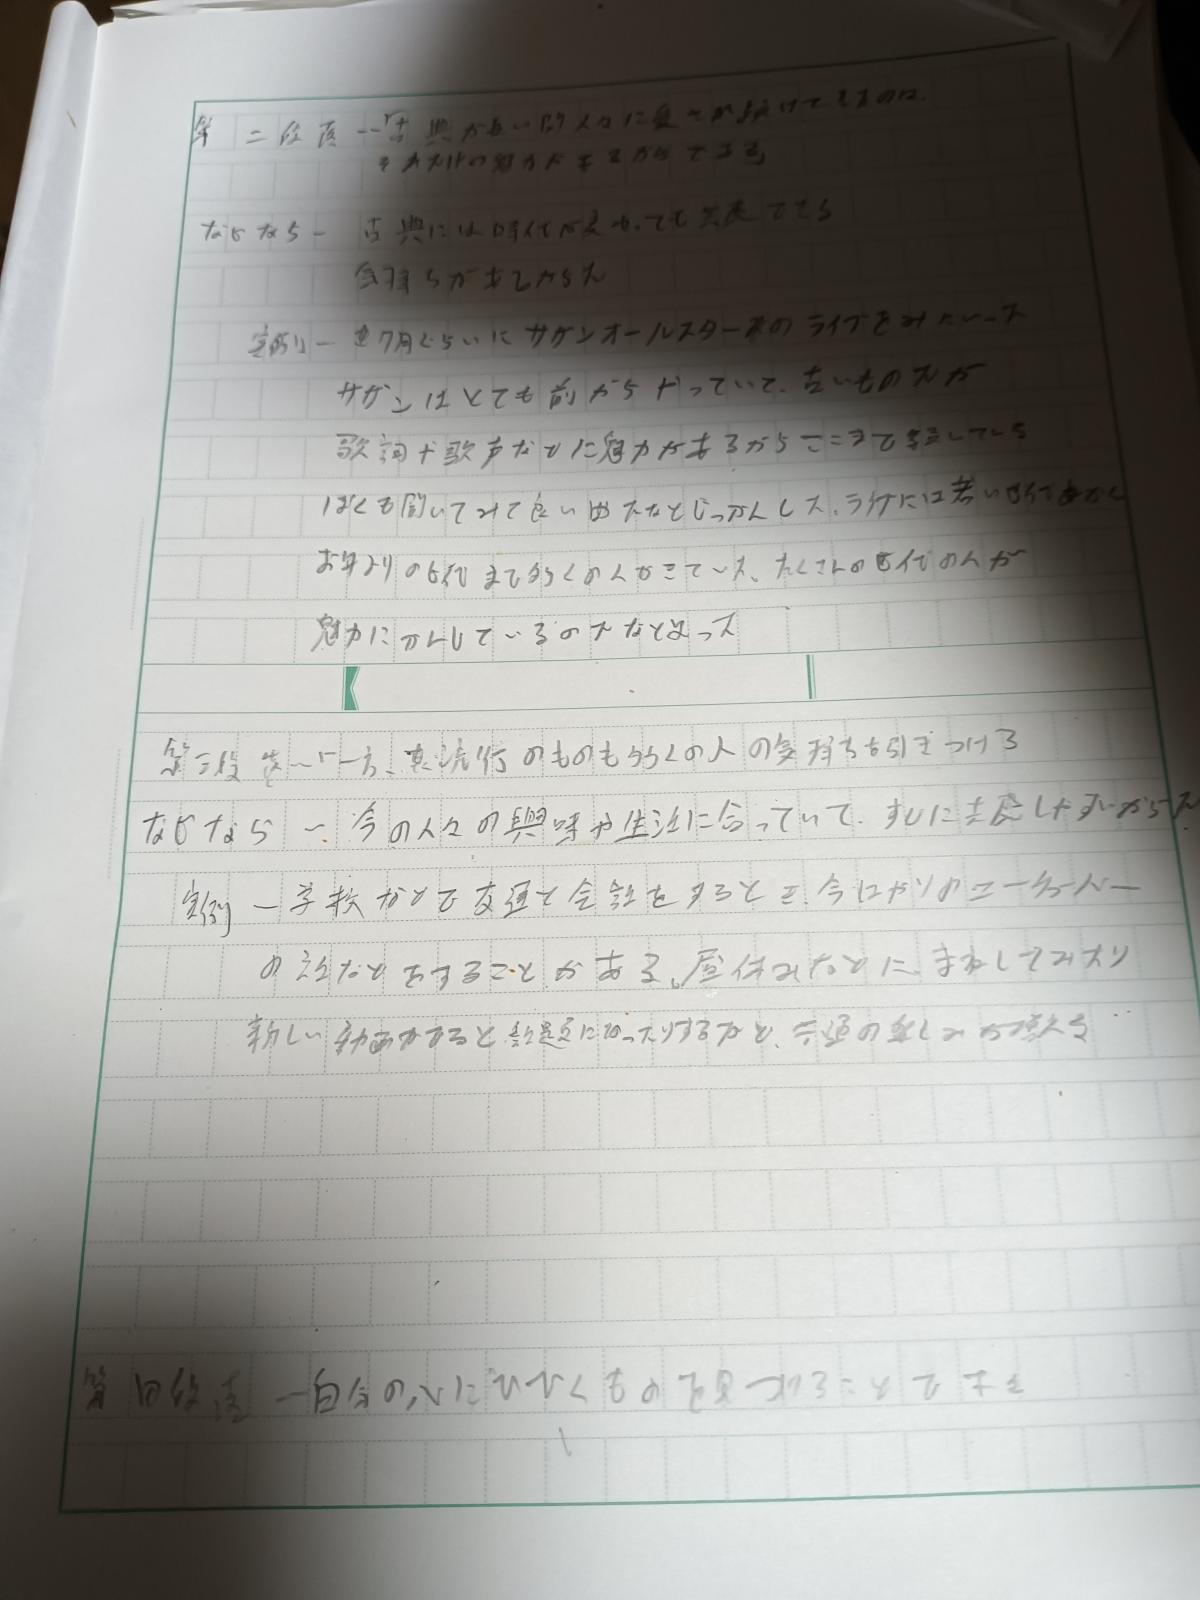 第二段落ー「古典が長い間人々に愛され続けてきたのは、
それだけの魅力があるからである」
なぜなら ー 古典には時代が変わっても共感できる
気持ちがあるからだ
実例ー 7月ぐらいに サザンオールスターズの ライブをみにいった
サザンはとても前からやっていて、古いものだが
歌詞や歌声などに魅力があるからここまで
ぼくも聞いてみて良い曲だなとじっかんした、ライブには若い世代
お年よりの世代まで多くの人がきていた、たくさんの世代の人が
魅力にかんじているのだなと思った
第三段落ー「一方、流行のものも多くの人の気持ちを引きつける
なぜなら ー 今の人々の興味や生活に合っていて、すぐに共感しやすいからだ
実例 ー 学校などで友達と会話をするとき、今はやりのユーチューバー
の話などをすることがある、昼休みなどに、まねしてみたり
新しい動画が出ると話題になったりするなど、共通の楽しみが増える
第四段落 ー自分の心にひびくもの